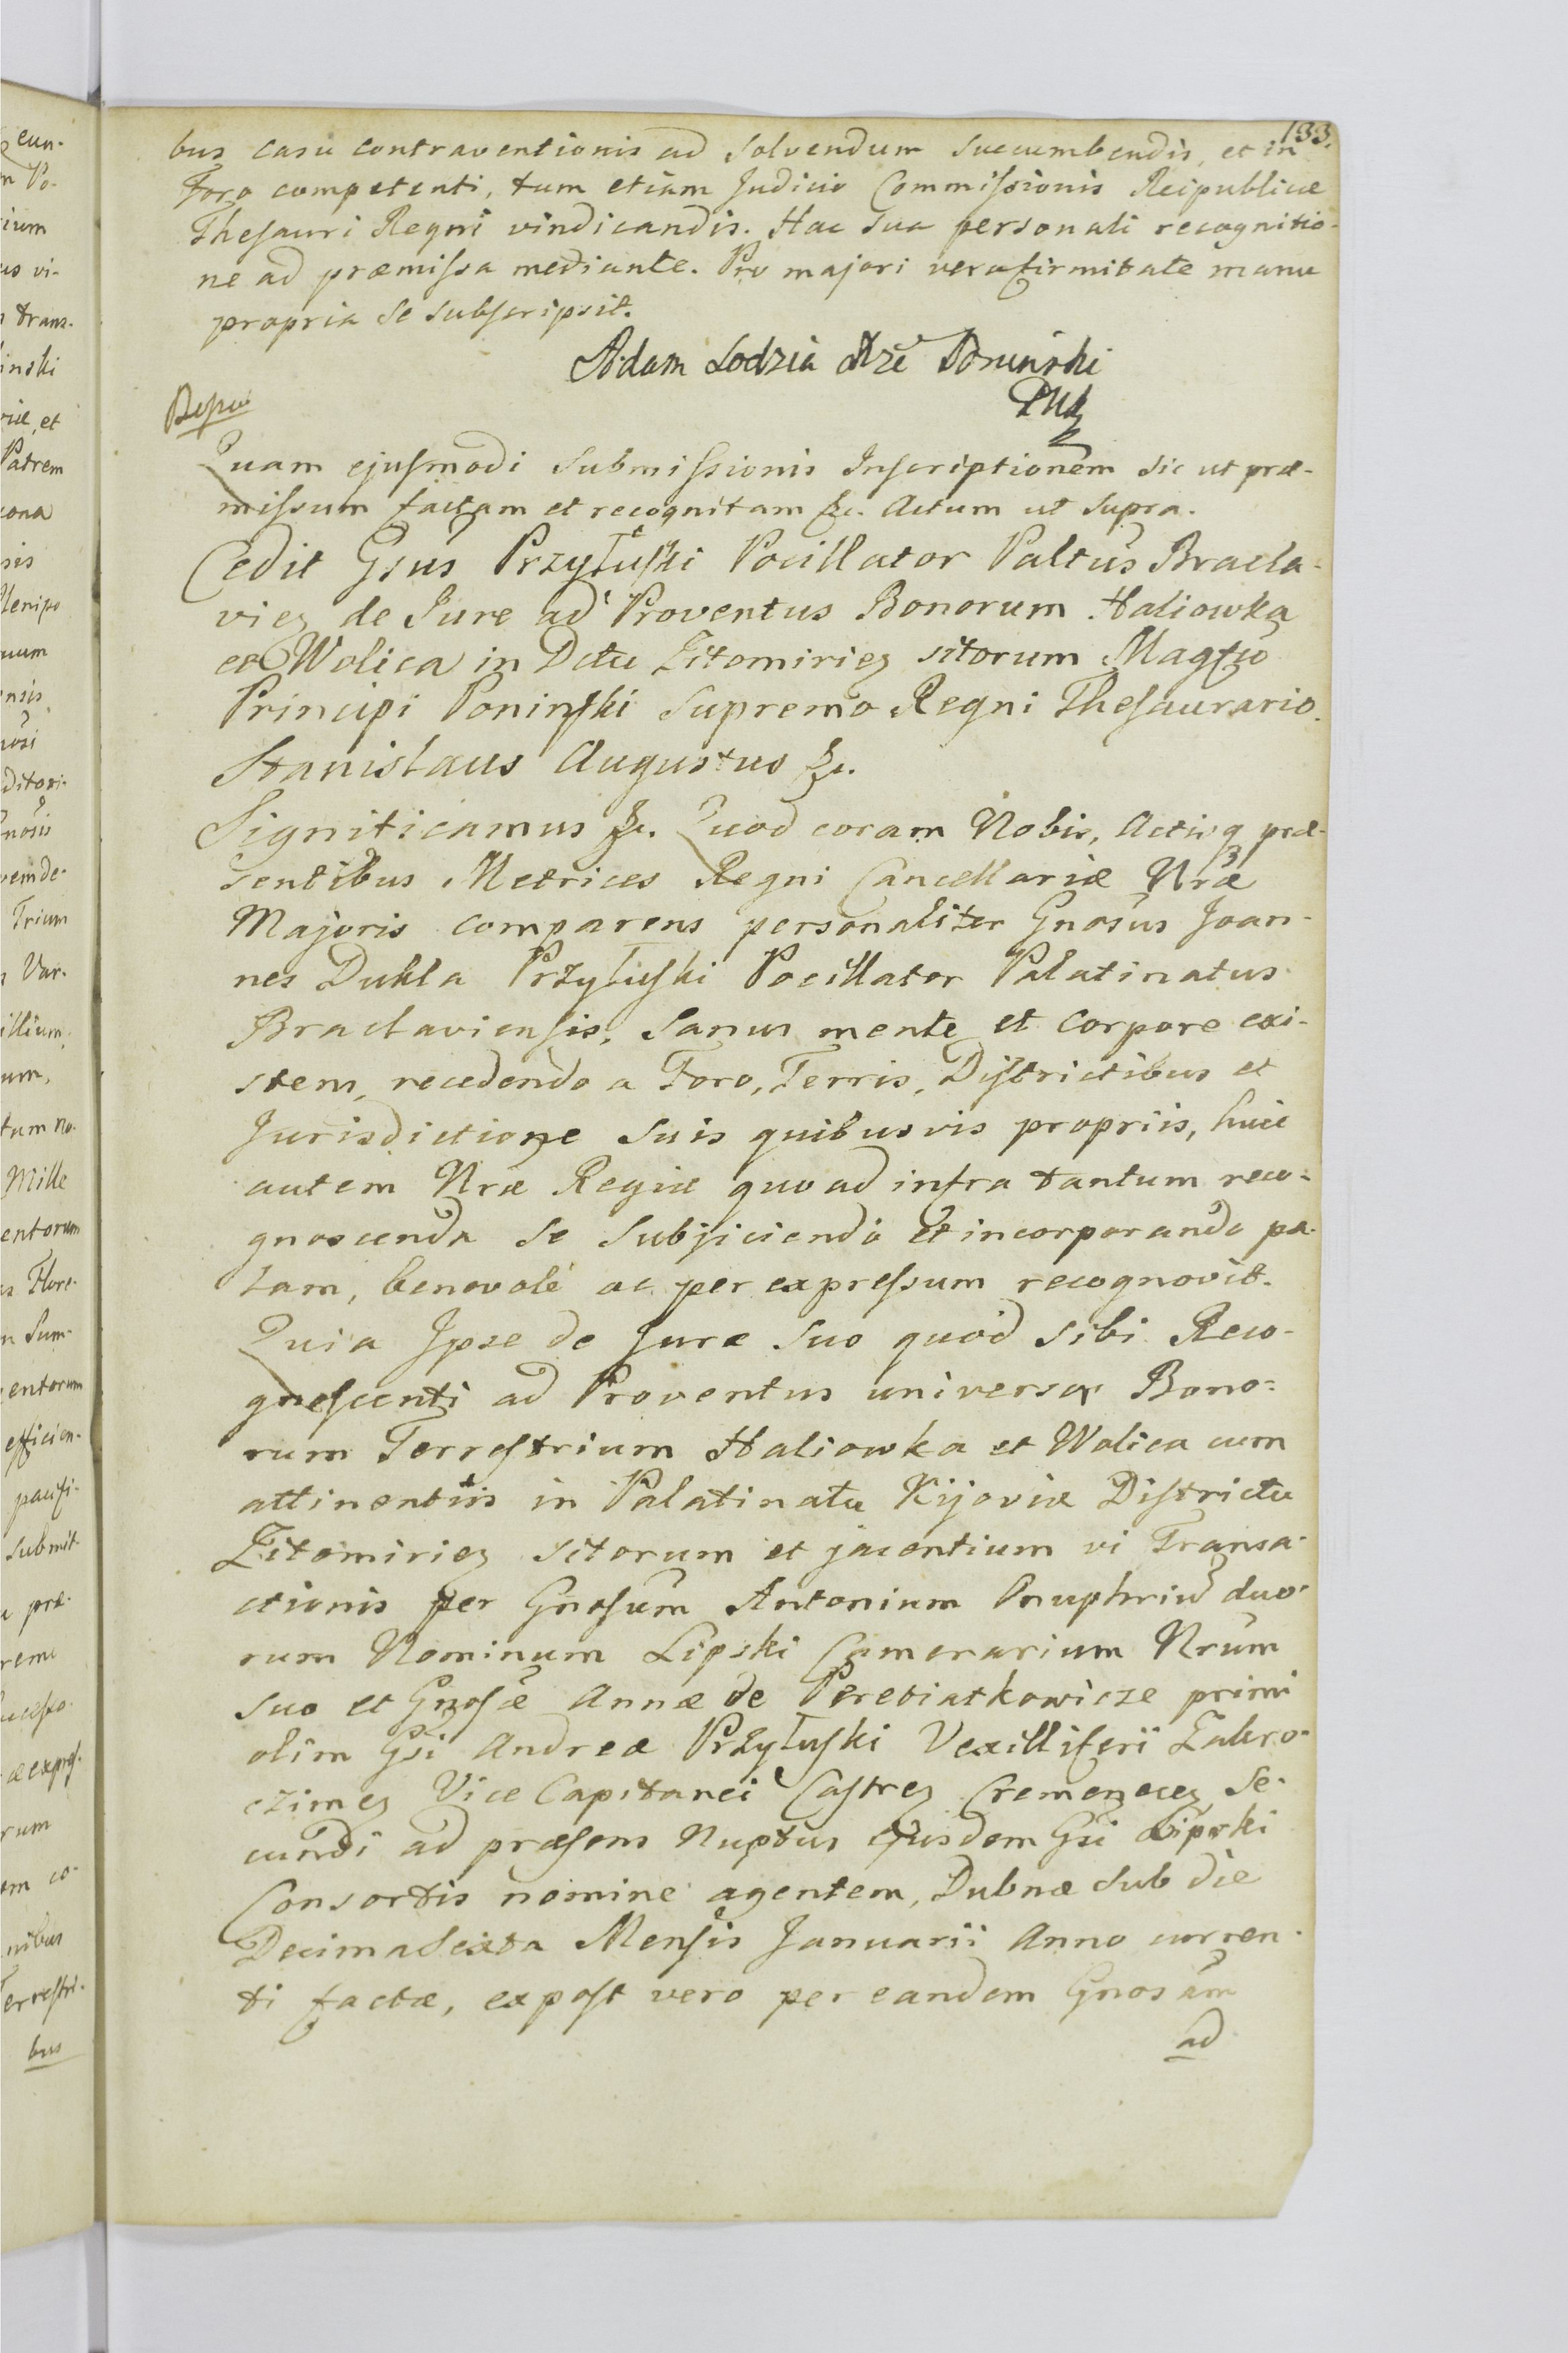 133.
bus casu contraventionis ad Solvendum Succumbendis, et in
Foro competenti, tum etiam Judicio Commissionis Reipublicæ
Thesauri Regni vindicandis. Hac Sua personali recognitio-
ne ad præmissa mediante. Pro majori vero firmitate manu
propria Se Subscripsit.
Adam Lodzia Xże Poninski
PWK
Quam ejusmodi Submissionis Inscriptionem Sic ut præ-
missum factam et recognitam &c. Actum ut Supra.
Cedit Gsus Przyłuski Pocillator Paltus Bracla-
vien de Jure ad Proventus Bonorum Haliowka
et Wolica in Dctu Zitomirien sitorum Magfco
Principi Poninski Supremo Regni Thesaurario.
Stanislaus Augustus &c.
Significamus &c. Quod coram Nobis, Actisq præ-
sentibus Metrices Regni Cancellariæ Nræ
Majoris comparens personaliter Gnosus Joan-
nes Dukla Przyłuski Pocillator Palatinatus
Braclaviensis, Sanus mente et Corpore exi-
stens, recedendo a Foro, Terris, Districtibus et
Jurisdictione Suis quibusvis propriis, huic
autem Nræ Regiæ quoad infra tantum reco-
gnoscenda Se Subjiciendo et incorporando pa-
lam, benevolè ac per expressum recognovit.
Quia Ipse de Jure Suo quod Sibi Reco-
gnoscenti ad Proventus universos Bono-
rum Terrestrium Haliowka et Wolica cum
attinentiis in Palatinatu Kijoviæ Districtu
Zitomirien sitorum et jacentium vi Transa-
ctionis per Gnosum Antonium Onuphriu duo-
rum Nominum Lipski Camerarium Nrum
Suo et Gnosæ Annæ de Peretiatkowicze primi
olim Gsi Andreæ Przyłuski Vexilliferi Zakro-
czimen Vice Capitanei Castren Cremenecen Se-
cundi ad præsens Nuptus ejusdem Gsi Lipski
Consortis nomine agentem, Dubnæ Sub die
Decima Sexta Mensis Januarii Anno curren-
ti factæ, expost vero per eandem Gnosam
ad